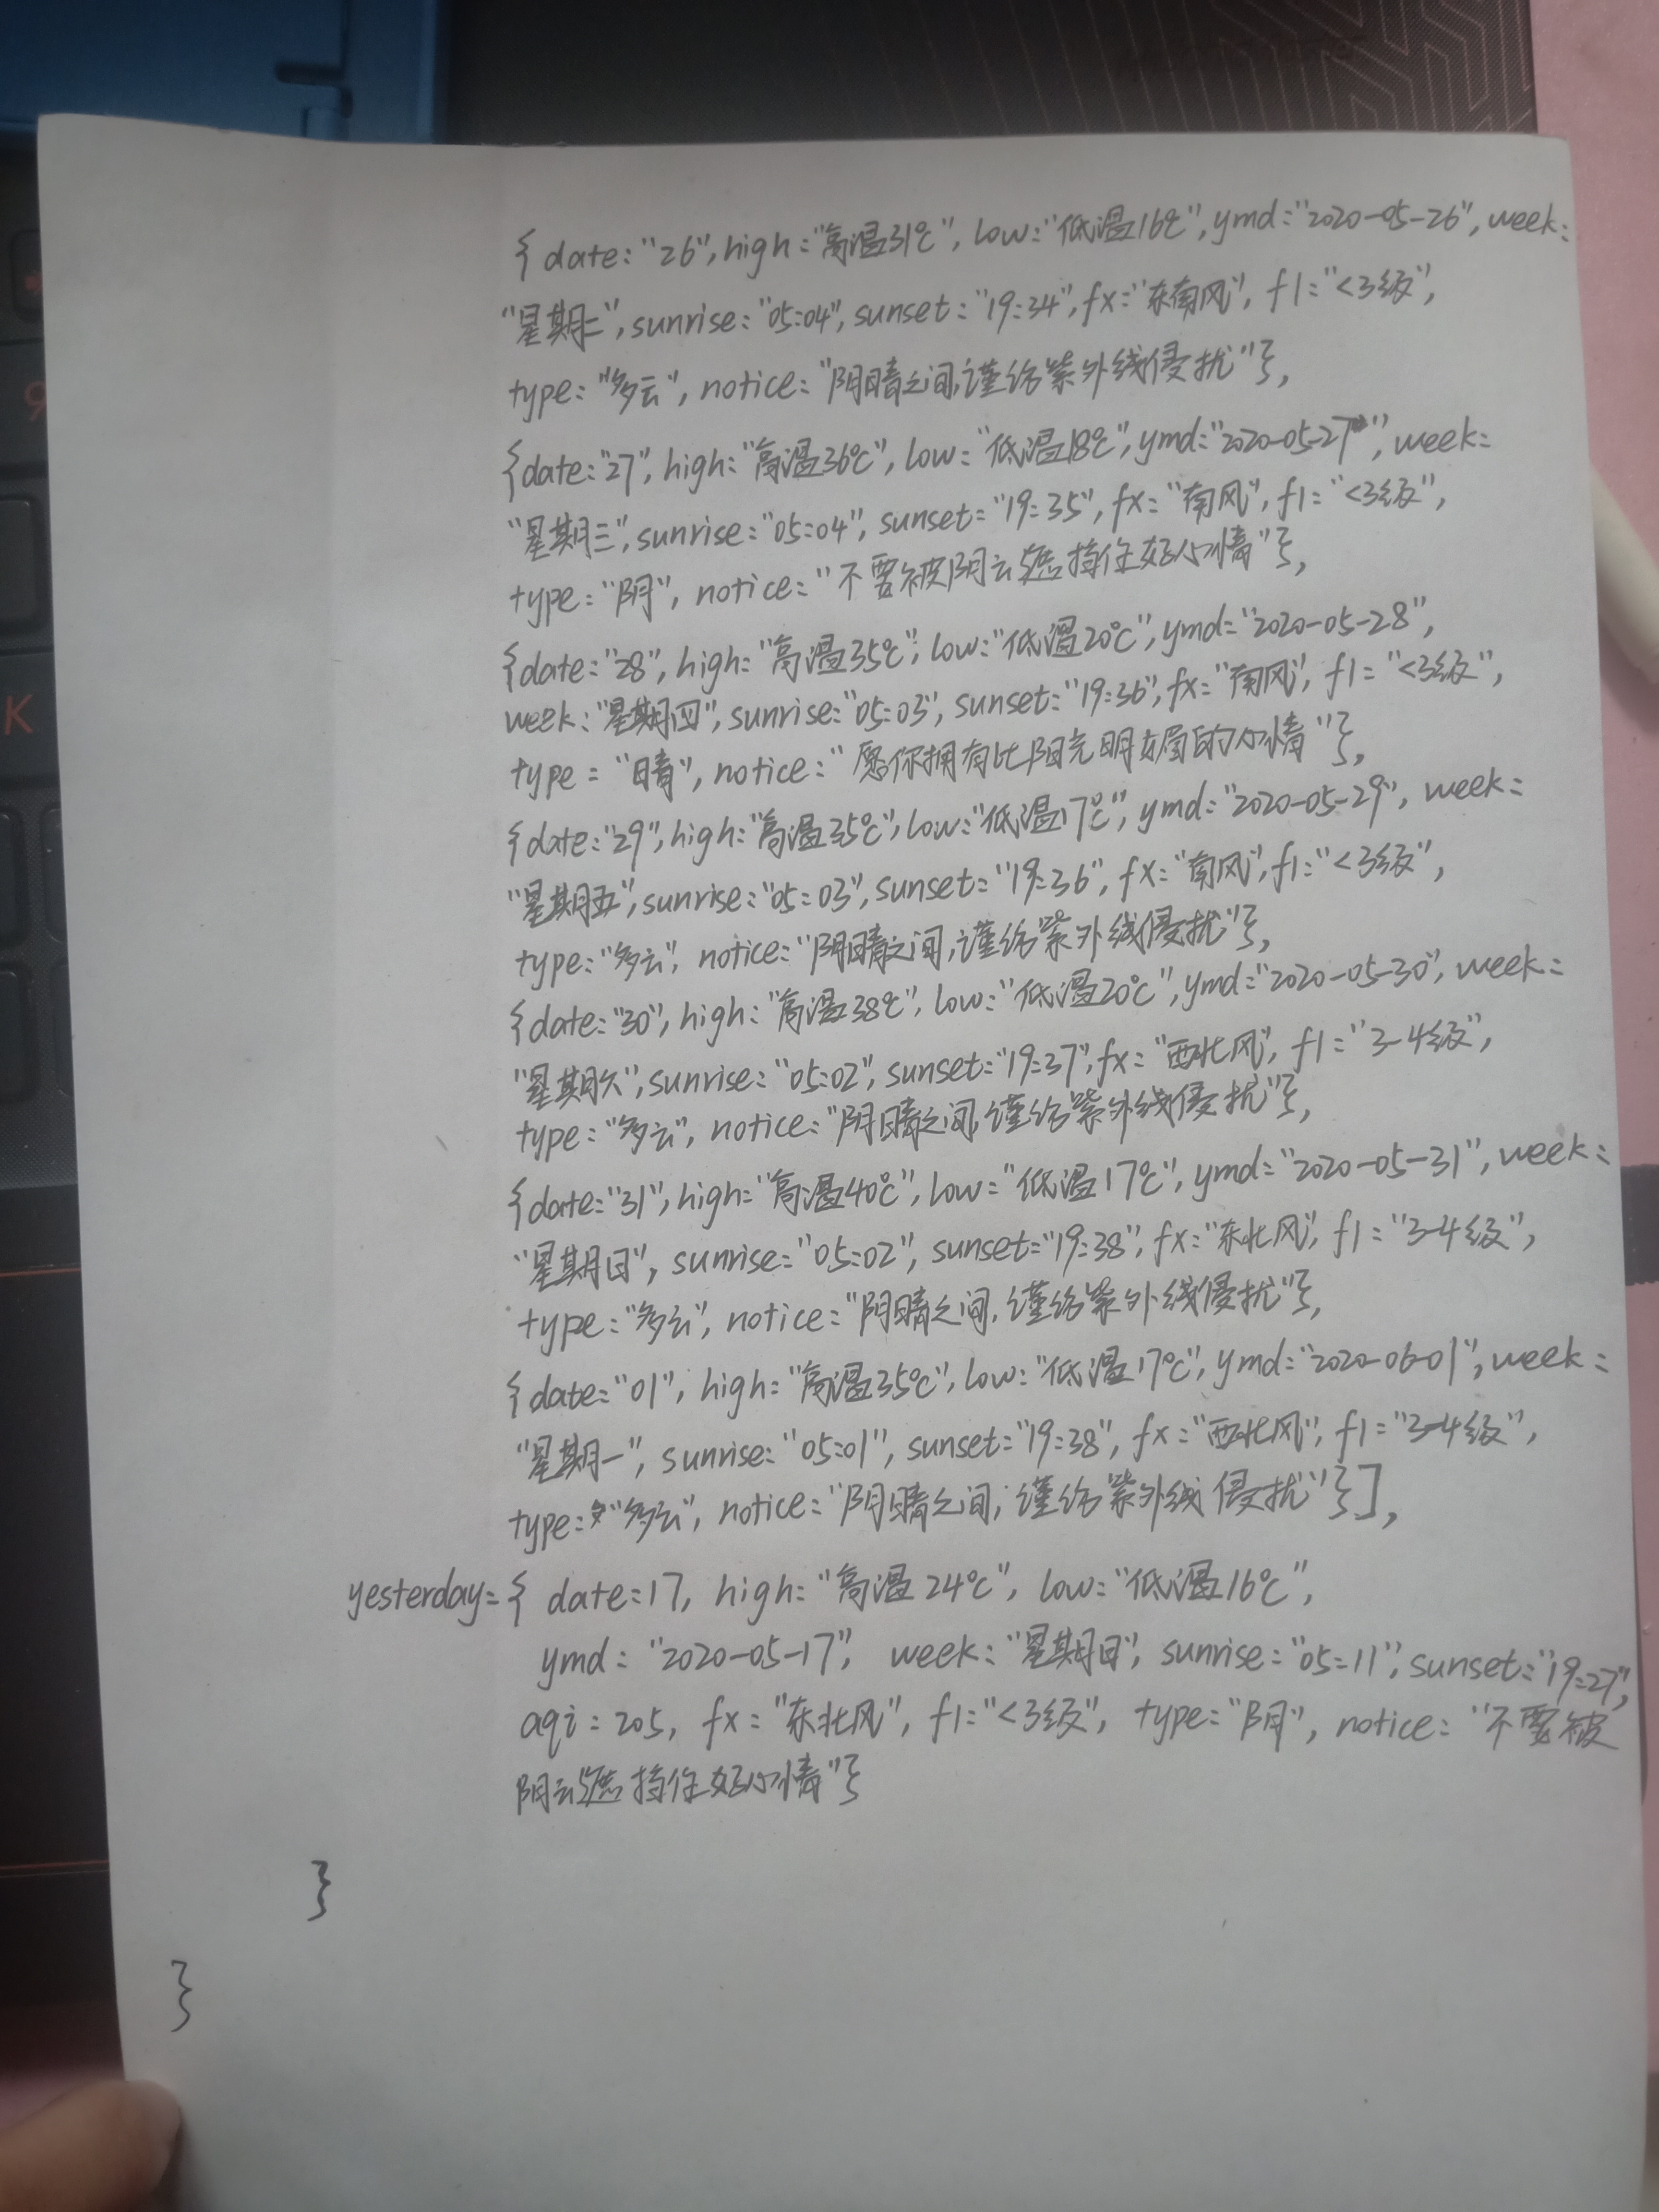 {date: "26", high: "高温31℃", low: "低温16℃", ymd: "2020-05-26", week:
"星期二", sunrise: "05:04", sunset: "19:34", fx: "东南风", fl: "<3级",
type: "多云", notice: "阴晴之间,谨给紫外线侵扰"},
{date: "27", high: "高温36℃", low: "低温18℃", ymd: "2020-05-27", week:
"星期三", sunrise: "05:04", sunset: "19:35", fx: "南风", fl: "<3级",
type: "阴", notice: "不要被阴云遮挡住好心情"},
{date: "28", high: "高温35℃", low: "低温20℃", ymd: "2020-05-28",
week: "星期四", sunrise: "05:03", sunset: "19:36", fx: "南风", fl: "<3级",
type: "晴", notice: "愿你拥有比阳光明媚的心情"},
{date: "29", high: "高温35℃", low: "低温17℃", ymd: "2020-05-29", week:
"星期五", sunrise: "05:03", sunset: "19:36", fx: "南风", fl: "<3级",
type: "多云", notice: "阴晴之间,谨给紫外线侵扰"},
{date: "30", high: "高温38℃", low: "低温20℃", ymd: "2020-05-30", week:
"星期六", sunrise: "05:02", sunset: "19:37", fx: "西北风", fl: "3-4级",
type: "多云", notice: "阴晴之间,谨给紫外线侵扰"},
{date: "31", high: "高温40℃", low: "低温17℃", ymd: "2020-05-31", week:
"星期日", sunrise: "05:02", sunset: "19:38", fx: "东北风", fl: "3-4级",
type: "多云", notice: "阴晴之间,谨给紫外线侵扰"},
{date: "01", high: "高温35℃", low: "低温17℃", ymd: "2020-06-01", week:
"星期一", sunrise: "05:01", sunset: "19:38", fx: "西北风", fl: "3-4级",
type: "多云", notice: "阴晴之间,谨给紫外线侵扰"}],
yesterday: { date: 17, high: "高温24℃", low: "低温16℃",
ymd: "2020-05-17", week: "星期日", sunrise: "05:11", sunset: "19:27",
aqi: 205, fx: "东北风", fl: "<3级", type: "阴", notice: "不要被
阴云遮挡住好心情"}
}
}
9
K